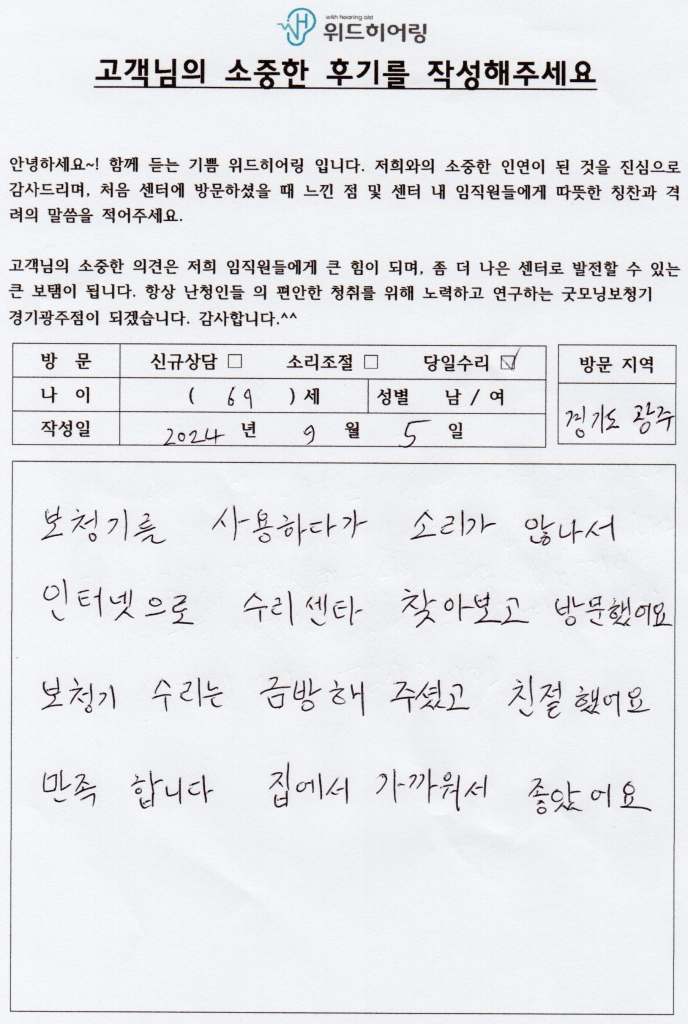 with hearing aid
위드히어링
고객님의 소중한 후기를 작성해주세요
안녕하세요~! 함께 듣는 기쁨 위드히어링 입니다. 저희와의 소중한 인연이 된 것을 진심으로
감사드리며, 처음 센터에 방문하셨을 때 느낀 점 및 센터 내 임직원들에게 따뜻한 칭찬과 격
려의 말씀을 적어주세요.
고객님의 소중한 의견은 저희 임직원들에게 큰 힘이 되며, 좀 더 나은 센터로 발전할 수 있는
큰 보탬이 됩니다. 항상 난청인들 의 편안한 청취를 위해 노력하고 연구하는 굿모닝보청기
경기광주점이 되겠습니다. 감사합니다.^^
방 문 신규상담 □ 소리조절 □ 당일수리 ☑ 방문 지역
나 이 ( 69 ) 세 성별 남 / 여 경기도 광주
작성일 2024 년 9 월 5 일
보청기를 사용하다가 소리가 않나서
인터넷으로 수리센타 찾아보고 방문했어요
보청기 수리는 금방해 주셨고 친절했어요
만족 합니다 집에서 가까워서 좋았어요